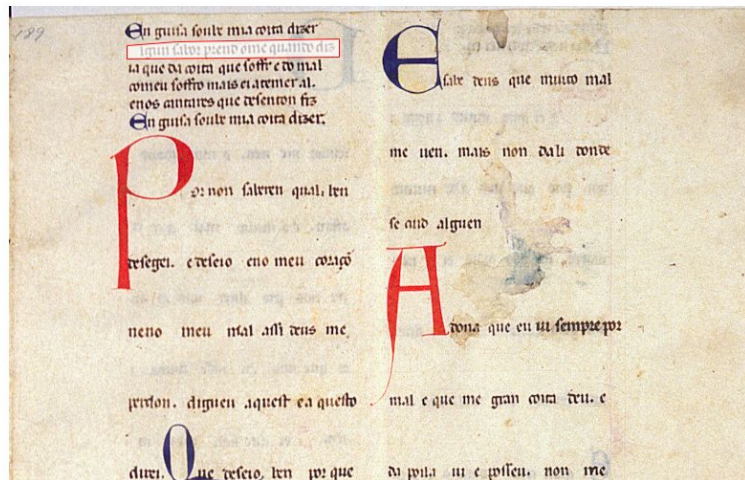 189
En guisa soubẽ mia coita dizer
lgun sabor prend ome quando diz
ia que da coita que soffr e do mal
comeu soffro mais ei atemer al.
enos cantares que desenton fiz
En guisa soubẽ mia coita dizer.
Por non saberen qual. ben
desegei. e deseio eno meu coraçõ
neno meu mal assi deus me
perdon. diguen aquest e a questo
direi. Que deseio, ben por que
E sabe deus que muito mal
me uen. mais non dali donde
se cuid alguen
A dona que eu ui sempre por
mal e que me gran coita deu. e
da poila ui e posseu. non me